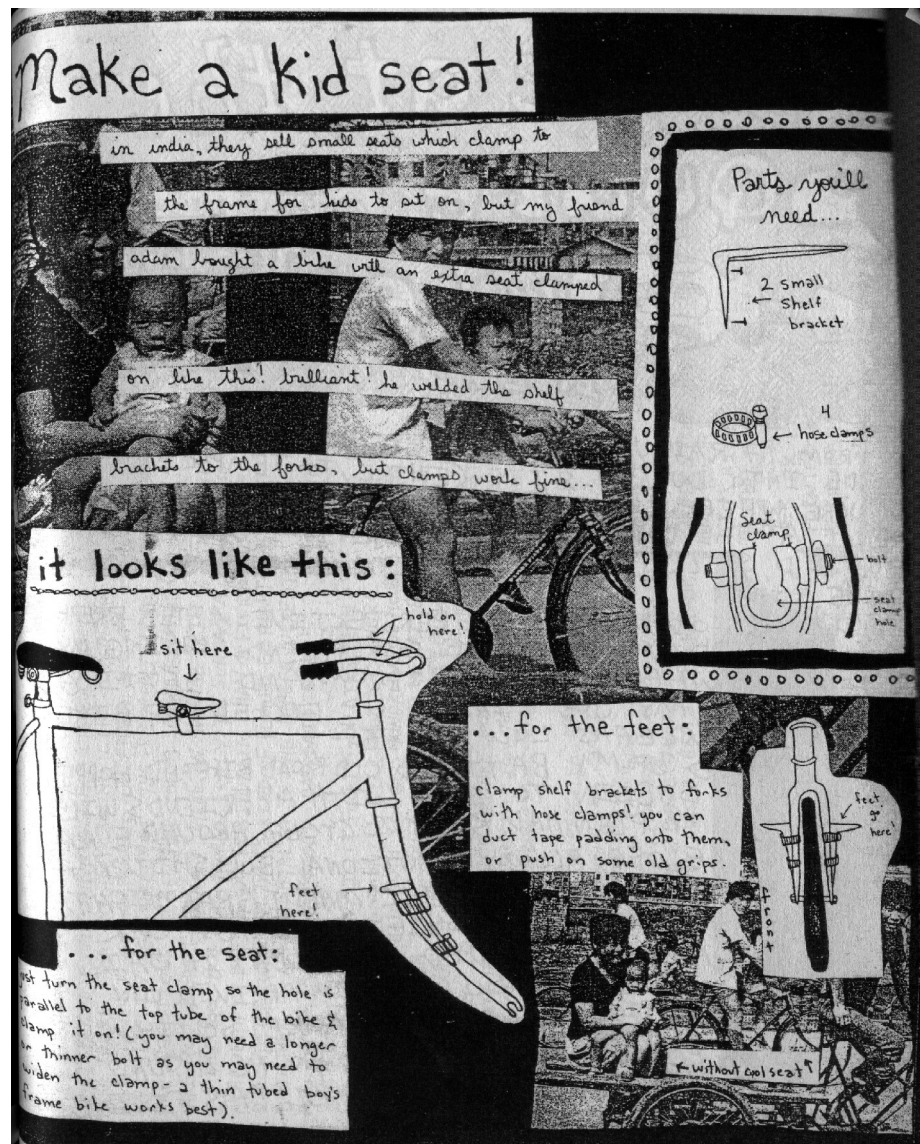 Make a kid seat!
in india, they sell small seats which clamp to
the frame for kids to sit on, but my friend
adam bought a bike with an extra seat clamped
on like this! brilliant! he welded the shelf
brackets to the forks, but clamps work fine...
Parts you'll
need...
2 small
shelf
bracket
4
hose clamps
Seat
clamp
bolt
seat
clamp
hole
it looks like this:
hold on
here!
sit here
feet
here!
...for the feet:
clamp shelf brackets to forks
with hose clamps! you can
duct tape padding onto them,
or push on some old grips.
feet
go
here!
front
... for the seat:
just turn the seat clamp so the hole is
parallel to the top tube of the bike &
clamp it on! (you may need a longer
or thinner bolt as you may need to
widen the clamp - a thin tubed boy's
frame bike works best).
without cool seat